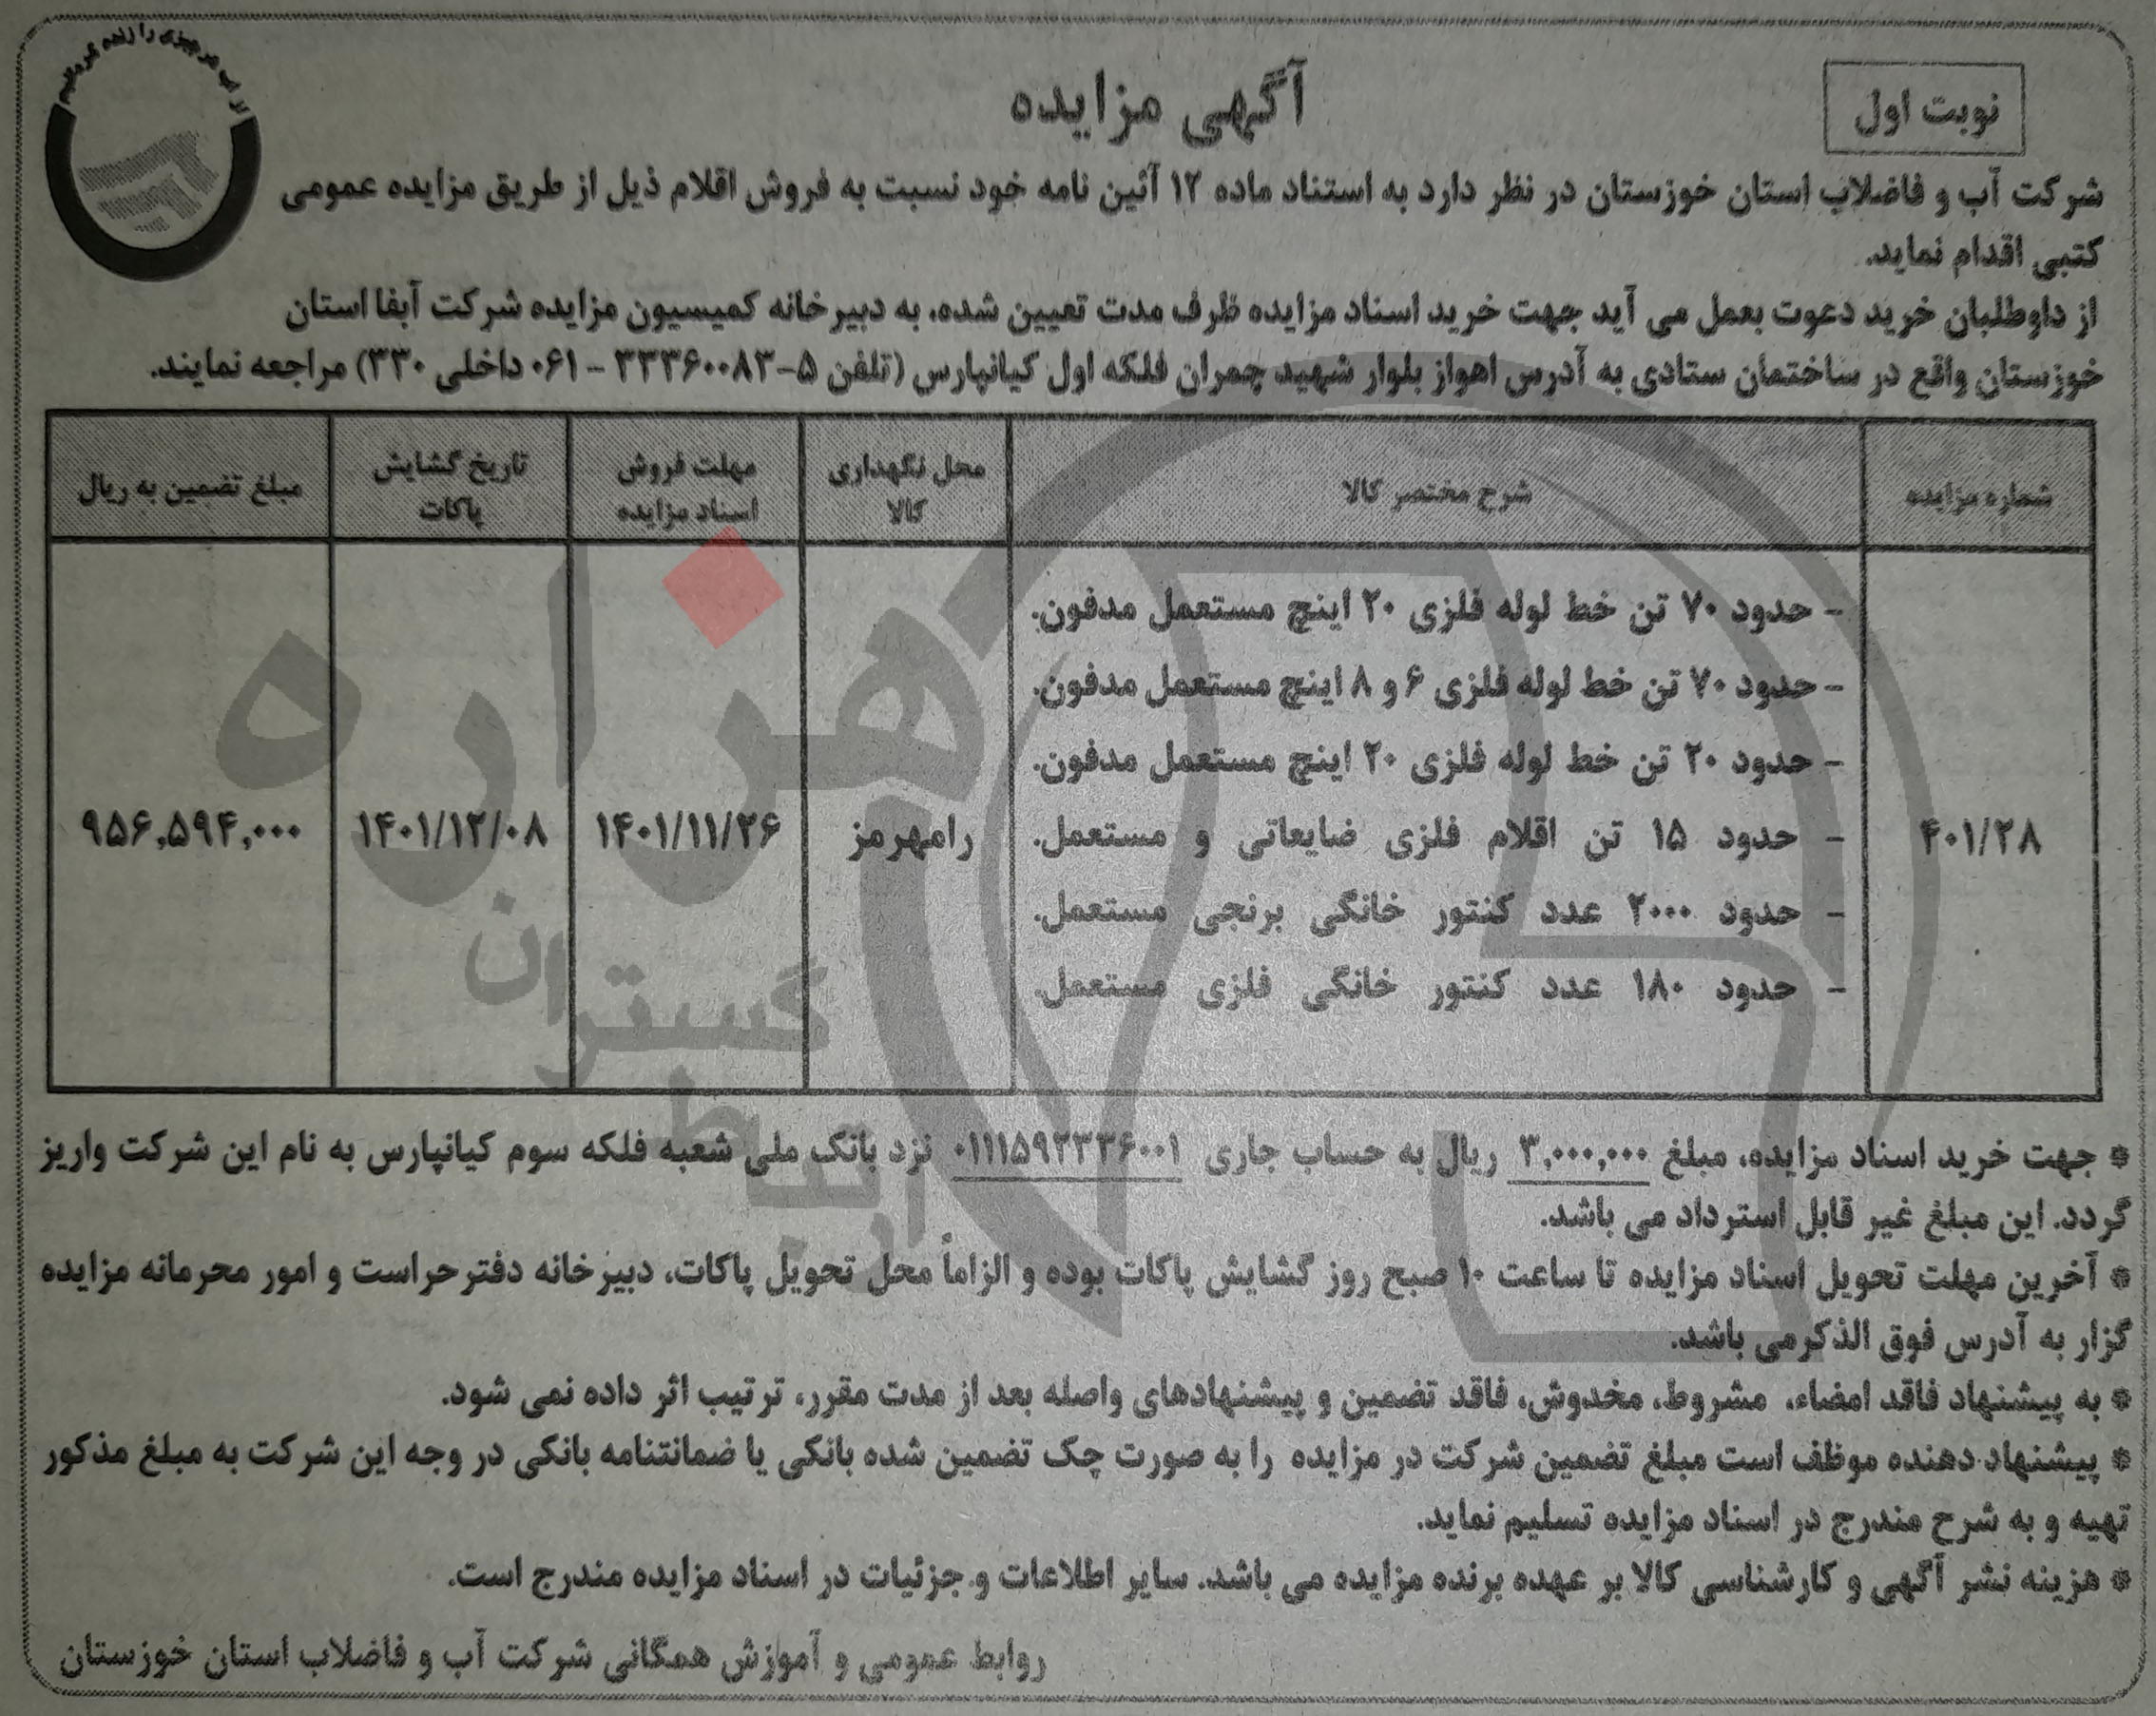 از آب هر چیزی را زنده گردانیدیم
نوبت اول
آگهی مزایده
شرکت آب و فاضلاب استان خوزستان در نظر دارد به استناد ماده ۱۲ آئین نامه خود نسبت به فروش اقلام ذیل از طریق مزایده عمومی
کتبی اقدام نماید.
از داوطلبان خرید دعوت بعمل می آید جهت خرید اسناد مزایده ظرف مدت تعیین شده، به دبیرخانه کمیسیون مزایده شرکت آبفا استان
خوزستان واقع در ساختمان ستادی به آدرس اهواز بلوار شهید چمران فلکه اول کیانپارس (تلفن ۵-۳۳۳۶۰۰۸۳ - ۰۶۱ داخلی ۳۳۰) مراجعه نمایند.
شماره مزایده
شرح مختصر کالا
محل نگهداری
کالا
مهلت فروش
اسناد مزایده
تاریخ گشایش
پاکات
مبلغ تضمین به ریال
۴۰۱/۲۸
- حدود ۷۰ تن خط لوله فلزی ۲۰ اینچ مستعمل مدفون.
- حدود ۷۰ تن خط لوله فلزی ۶ و ۸ اینچ مستعمل مدفون.
- حدود ۲۰ تن خط لوله فلزی ۲۰ اینچ مستعمل مدفون.
- حدود ۱۵ تن اقلام فلزی ضایعاتی و مستعمل.
- حدود ۲۰۰۰ عدد کنتور خانگی برنجی مستعمل.
- حدود ۱۸۰ عدد کنتور خانگی فلزی مستعمل.
رامهرمز
۱۴۰۱/۱۱/۲۶
۱۴۰۱/۱۲/۰۸
۹۵۶,۵۹۴,۰۰۰
هزاره
گستران
ارتباط
* جهت خرید اسناد مزایده، مبلغ ۳,۰۰۰,۰۰۰ ریال به حساب جاری ۰۱۱۱۵۹۲۳۳۶۰۰۱ نزد بانک ملی شعبه فلکه سوم کیانپارس به نام این شرکت واریز
گردد. این مبلغ غیر قابل استرداد می باشد.
* آخرین مهلت تحویل اسناد مزایده تا ساعت ۱۰ صبح روز گشایش پاکات بوده و الزاماً محل تحویل پاکات، دبیرخانه دفتر حراست و امور محرمانه مزایده
گزار به آدرس فوق الذکر می باشد.
* به پیشنهاد فاقد امضاء، مشروط، مخدوش، فاقد تضمین و پیشنهادهای واصله بعد از مدت مقرر، ترتیب اثر داده نمی شود.
* پیشنهاد دهنده موظف است مبلغ تضمین شرکت در مزایده را به صورت چک تضمین شده بانکی یا ضمانتنامه بانکی در وجه این شرکت به مبلغ مذکور
تهیه و به شرح مندرج در اسناد مزایده تسلیم نماید.
* هزینه نشر آگهی و کارشناسی کالا بر عهده برنده مزایده می باشد. سایر اطلاعات و جزئیات در اسناد مزایده مندرج است.
روابط عمومی و آموزش همگانی شرکت آب و فاضلاب استان خوزستان